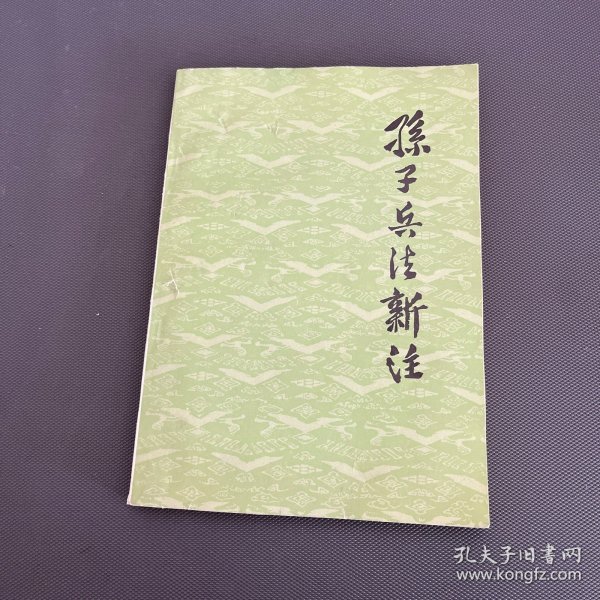 孫子兵法新注
孔夫子旧書网
www.kongfz.com